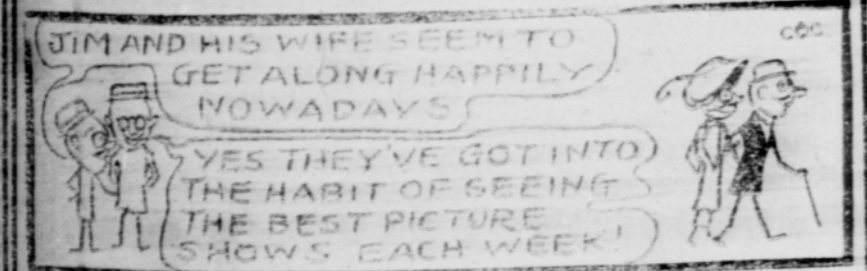 JIM AND HIS WIFE SEEM TO
GET ALONG HAPPILY
NOWADAYS
YES THEY'VE GOT INTO
THE HABIT OF SEEING
THE BEST PICTURE
SHOWS EACH WEEK!